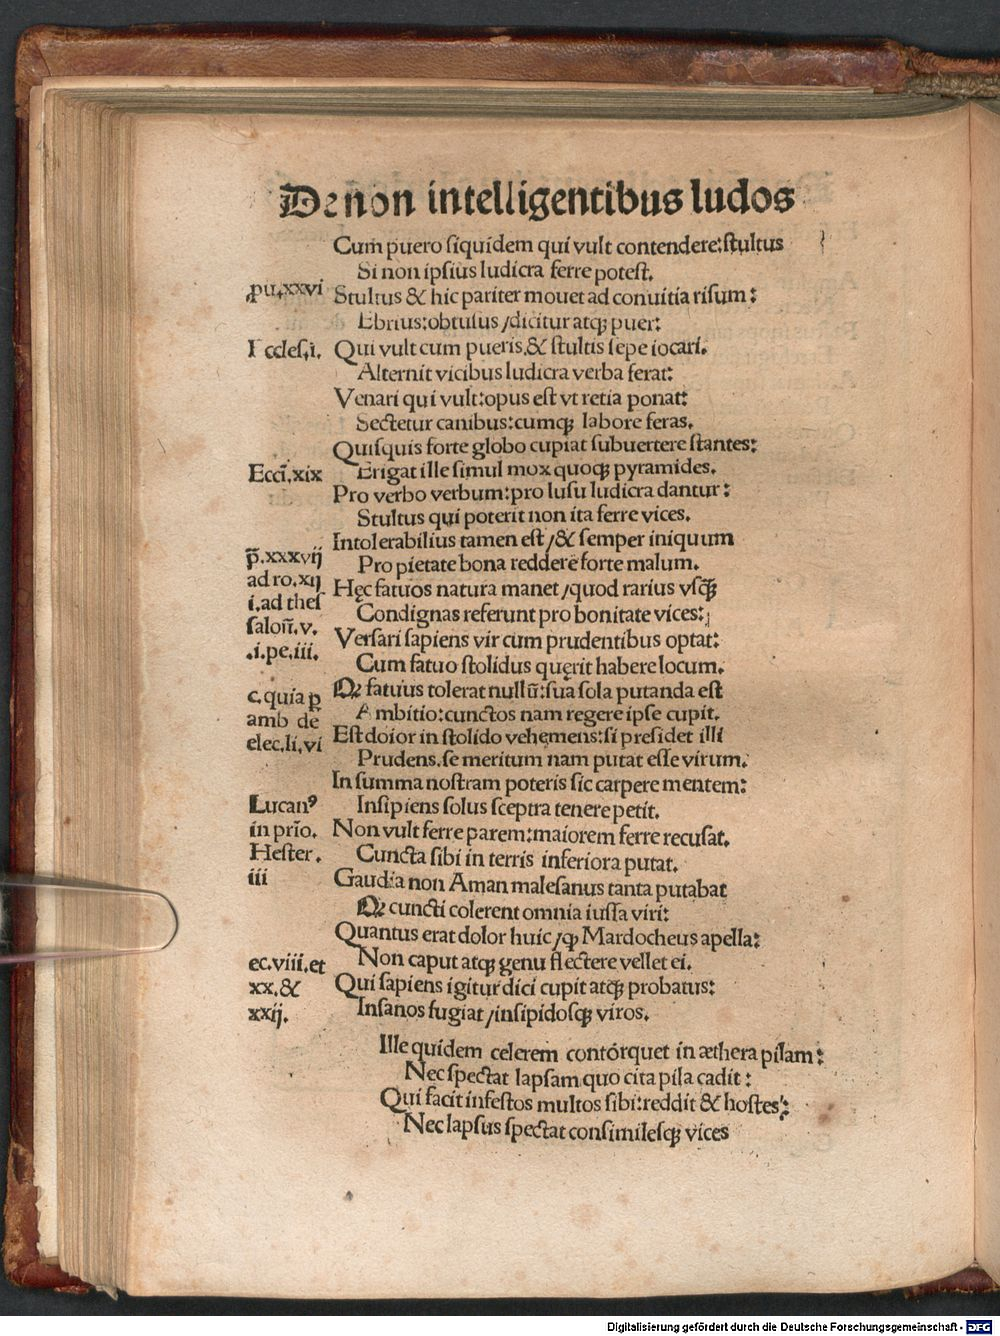 De non intelligentibus ludos
Cum puero siquidem qui vult contendere: stultus
Si non ipsius ludicra ferre potest.
ꝓu. xxvi Stultus & hic pariter mouet ad conuitia risum:
Ebrius: obtusus / dicitur atqꝫ puer:
Eccles. i. Qui vult cum pueris, & stultis sepe iocari.
Alternit vicibus ludicra verba ferat:
Venari qui vult: opus est vt retia ponat:
Sectetur canibus: cumqꝫ labore feras.
Quisquis forte globo cupiat subuertere stantes:
Eccī. xix Erigat ille simul mox quoqꝫ pyramides.
Pro verbo verbum: pro lusu ludicra dantur:
Stultus qui poterit non ita ferre vices.
Intolerabilius tamen est / & semper iniquum
p̄. xxxvij Pro pietate bona reddere forte malum.
ad ro. xij Hęc fatuos natura manet / quod rarius vsq̄ꝫ
i. ad thes Condignas referunt pro bonitate vices:
salon̄. v. Versari sapiens vir cum prudentibus optat:
.i. pe. iii. Cum fatuo stolidus quęrit habere locum.
c. quia ꝑ Qꝫ fatuus tolerat nullū: sua sola putanda est
amb de Ambitio: cunctos nam regere ipse cupit.
elec. li. vi Est dolor in stolido vehęmens: si presidet illi
Prudens. se meritum nam putat esse virum.
In summa nostram poteris sic carpere mentem:
Lucanꝰ Insipiens solus sceptra tenere petit.
in prīo. Non vult ferre parem: maiorem ferre recusat.
Hester. Cuncta sibi in terris inferiora putat.
iii Gaudia non Aman malesanus tanta putabat
Qꝫ cuncti colerent omnia iussa viri:
Quantus erat dolor huic / qꝫ Mardocheus apella:
ec. viii. et Non caput atqꝫ genu flectere vellet ei.
xx. & Qui sapiens igitur dici cupit atqꝫ probatus:
xxij. Insanos fugiat / insipidosqꝫ viros.
Ille quidem celerem contórquet in æthera pilam:
Nec spectat lapsam quo cita pila cadit:
Qui facit infestos multos sibi: reddit & hostes:
Nec lapsus spectat consimilesqꝫ vices
Digitalisierung gefördert durch die Deutsche Forschungsgemeinschaft - DFG